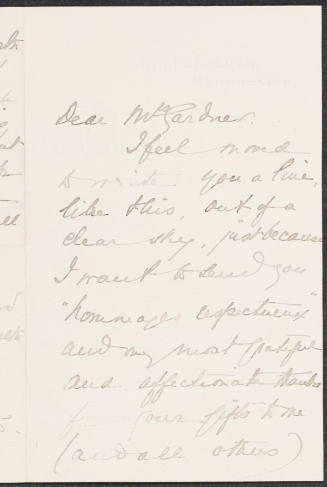 Dear Mrs Gardner.
I feel moved
to write you a line,
like this, out of a
clear sky, just because
I want to send you
"hommages respectueux"
and my most grateful
and affectionate thanks
for your gifts to me
(and all others)